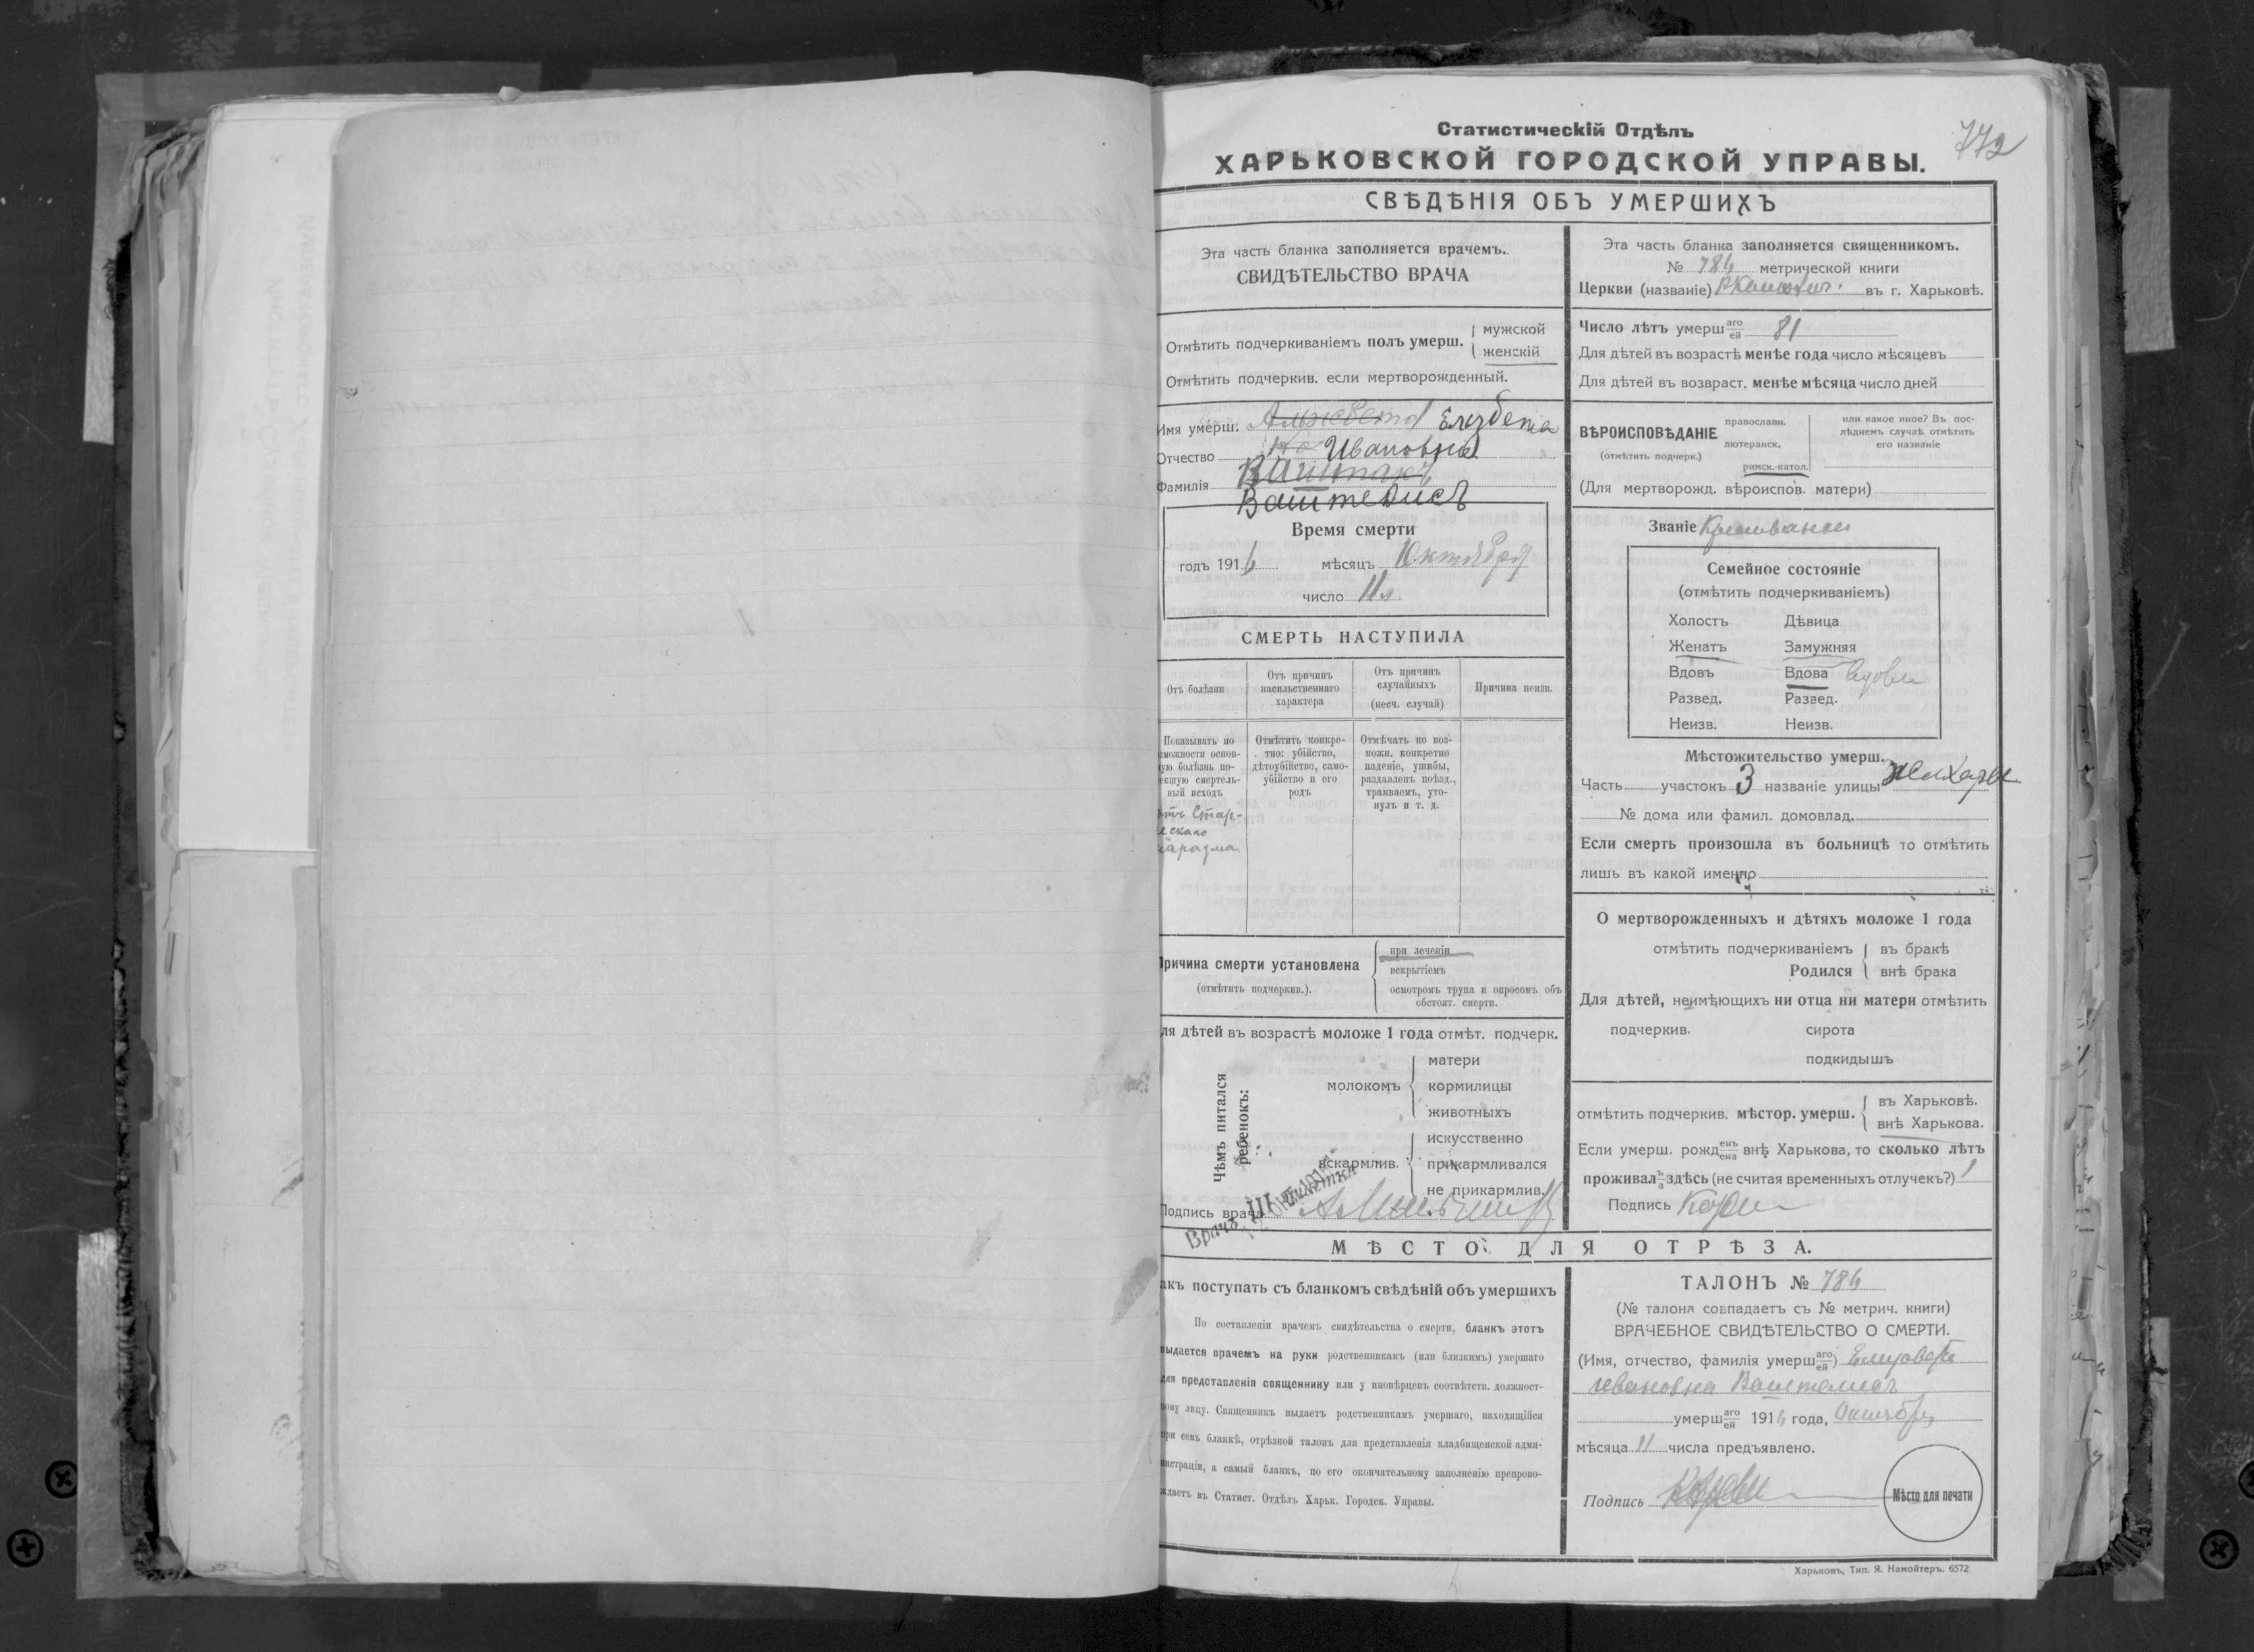 772
Статистическій Отдѣлъ
ХАРЬКОВСКОЙ ГОРОДСКОЙ УПРАВЫ.
СВѢДѢНІЯ ОБЪ УМЕРШИХЪ
Эта часть бланка заполняется врачемъ.
СВИДѢТЕЛЬСТВО ВРАЧА
Отмѣтить подчеркиваніемъ полъ умерш.
мужской
женскій
Отмѣтить подчеркив. если мертворожденный.
Имя умерш. Альжбета Елизбета
Отчество Ивановна
Фамилія Ваштакъ
Ваштелисъ
Время смерти
годъ 1916 мѣсяцъ Октября
число 11
СМЕРТЬ НАСТУПИЛА
Отъ болѣзни
Отъ причинъ насильственнаго характера
Отъ причинъ случайныхъ (несч. случай)
Причина неизв.
Показывать по
зможности основ-
ую болѣзнь по-
екшую смертель-
ный исходъ
Отмѣтить конкре-
тно: убійство,
дѣтоубійство, само-
убійство и его
родъ
Отмѣчать по воз-
можн. конкретно
паденіе, ушибы,
раздавленъ поѣзд.,
трамваемъ, уто-
нулъ и т. д.
отъ Старче-
скаго
маразма
Причина смерти установлена
(отмѣтить подчеркив.).
при леченіи
вскрытіемъ
осмотромъ трупа и опросомъ объ
обстоят. смерти.
ля дѣтей въ возрастѣ моложе 1 года отмѣт. подчерк.
Чѣмъ питался
ребенокъ:
молокомъ
матери
кормилицы
животныхъ
вскармлив.
искусственно
прикармливался
не прикармлив.
Подпись врача
Врачъ III участка
Эта часть бланка заполняется священникомъ.
№ 784 метрической книги
Церкви (названіе) Р Католич. въ г. Харьковѣ.
Число лѣтъ умерш аго/ей 81
Для дѣтей въ возрастѣ менѣе года число мѣсяцевъ
Для дѣтей въ возвраст. менѣе мѣсяца число дней
ВѢРОИСПОВѢДАНІЕ
(отмѣтить подчерк.)
православн.
лютеранск.
римск.-катол.
или какое иное? Въ пос-
лѣднемъ случаѣ отмѣтить
его названіе
(Для мертворожд. вѣроиспов. матери)
Званіе Крестьянки
Семейное состояніе
(отмѣтить подчеркиваніемъ)
Холостъ Дѣвица
Женатъ Замужняя
Вдовъ Вдова вдова
Развед. Развед.
Неизв. Неизв.
Мѣстожительство умерш.
Часть участокъ 3 названіе улицы
№ дома или фамил. домовлад.
Если смерть произошла въ больницѣ то отмѣтить
лишь въ какой именно
О мертворожденныхъ и дѣтяхъ моложе 1 года
отмѣтить подчеркиваніемъ
Родился
въ бракѣ
внѣ брака
Для дѣтей, неимѣющихъ ни отца ни матери отмѣтить
подчеркив. сирота
подкидышъ
отмѣтить подчеркив. мѣстор. умерш.
въ Харьковѣ.
внѣ Харькова.
Если умерш. рожд енъ/ена внѣ Харькова, то сколько лѣтъ
проживал ъ/а здѣсь (не считая временныхъ отлучекъ?) 1
Подпись
МѢСТО ДЛЯ ОТРѢЗА.
акъ поступать съ бланкомъ свѣдѣній объ умершихъ
По составленіи врачемъ свидѣтельства о смерти, бланкъ этотъ
выдается врачемъ на руки родственникамъ (или близкимъ) умершаго
для представленія священнику или у иновѣрцевъ соотвѣтств. должност-
ному лицу. Священникъ выдаетъ родственникамъ умершаго, находящійся
при семъ бланкѣ, отрѣзной талонъ для представленія кладбищенской адми-
нистраціи, а самый бланкъ, по его окончательному заполненію препрово-
ждаетъ въ Статист. Отдѣлъ Харьк. Городск. Управы.
ТАЛОНЪ № 784
(№ талона совпадаетъ съ № метрич. книги)
ВРАЧЕБНОЕ СВИДѢТЕЛЬСТВО О СМЕРТИ.
(Имя, отчество, фамилія умерш аго/ей) Елизавета
Ивановна Ваштелисъ
умерш аго/ей 1916 года, Октября
мѣсяца 11 числа предъявлено.
Подпись
Мѣсто для печати
Харьковъ, Тип. Я. Намойтеръ. 6572